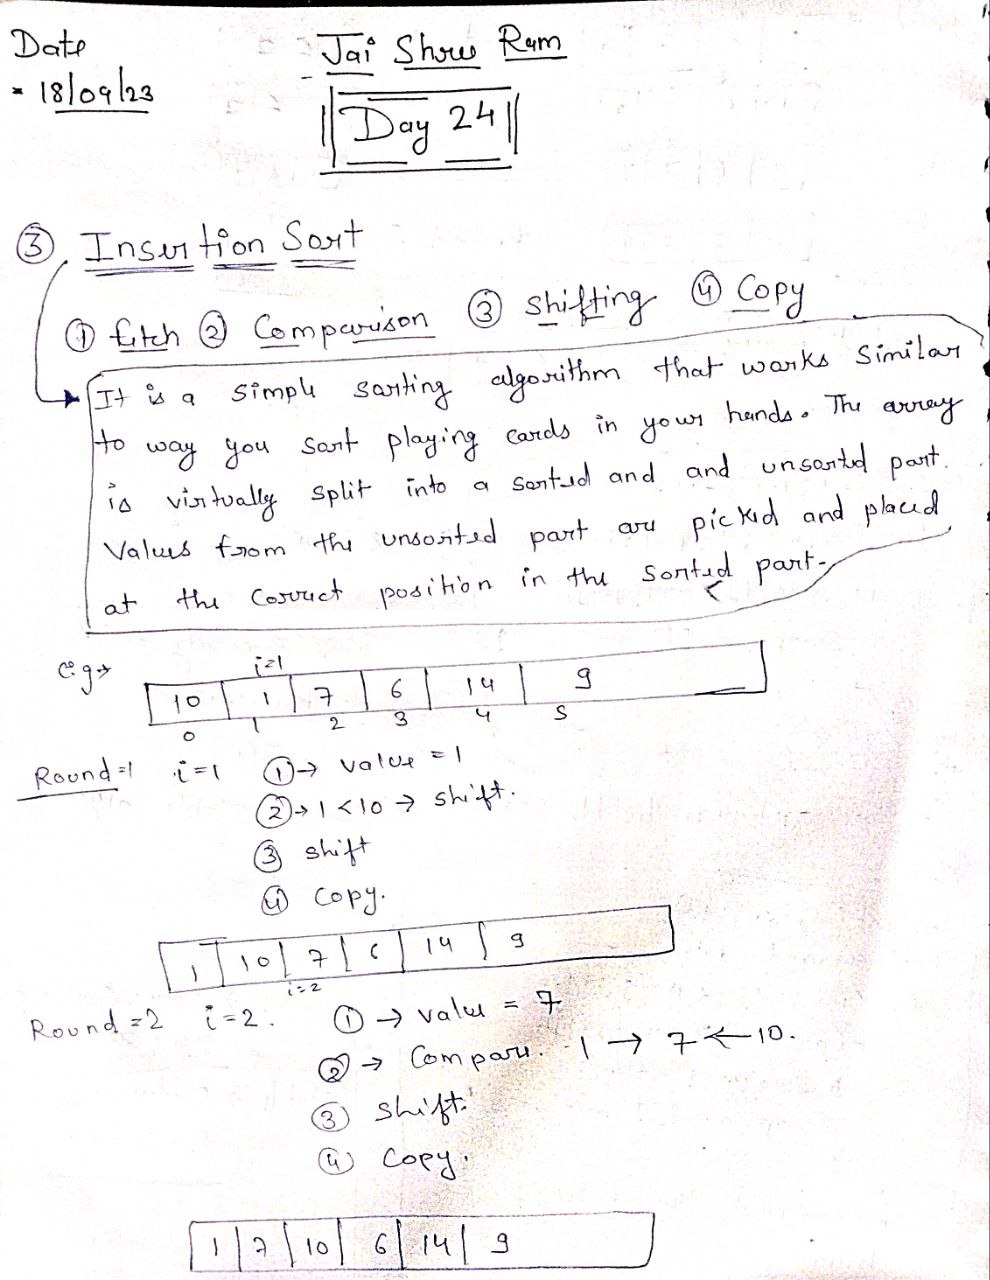 Date
Jai Shree Ram
18/09/23
Day 24
③ Insertion Sort
① fetch ② Comparison ③ Shifting ④ Copy
It is a simple sorting algorithm that works Similar
to way you sort playing cards in your hands. The array
is virtually split into a sorted and and unsorted part.
Values from the unsorted part are picked and placed
at the correct position in the sorted part.
e.g→
i=1
10 | 1 | 7 | 6 | 14 | 9
0 1 2 3 4 5
Round=1 i=1 ①→ value = 1
②→ 1 < 10 → shift.
③ shift
④ copy.
1 | 10 | 7 | 6 | 14 | 9
i=2
Round=2 i=2. ①→ value = 7
②→ Compare. 1 → 7 ← 10.
③ shift.
④ copy.
1 | 7 | 10 | 6 | 14 | 9